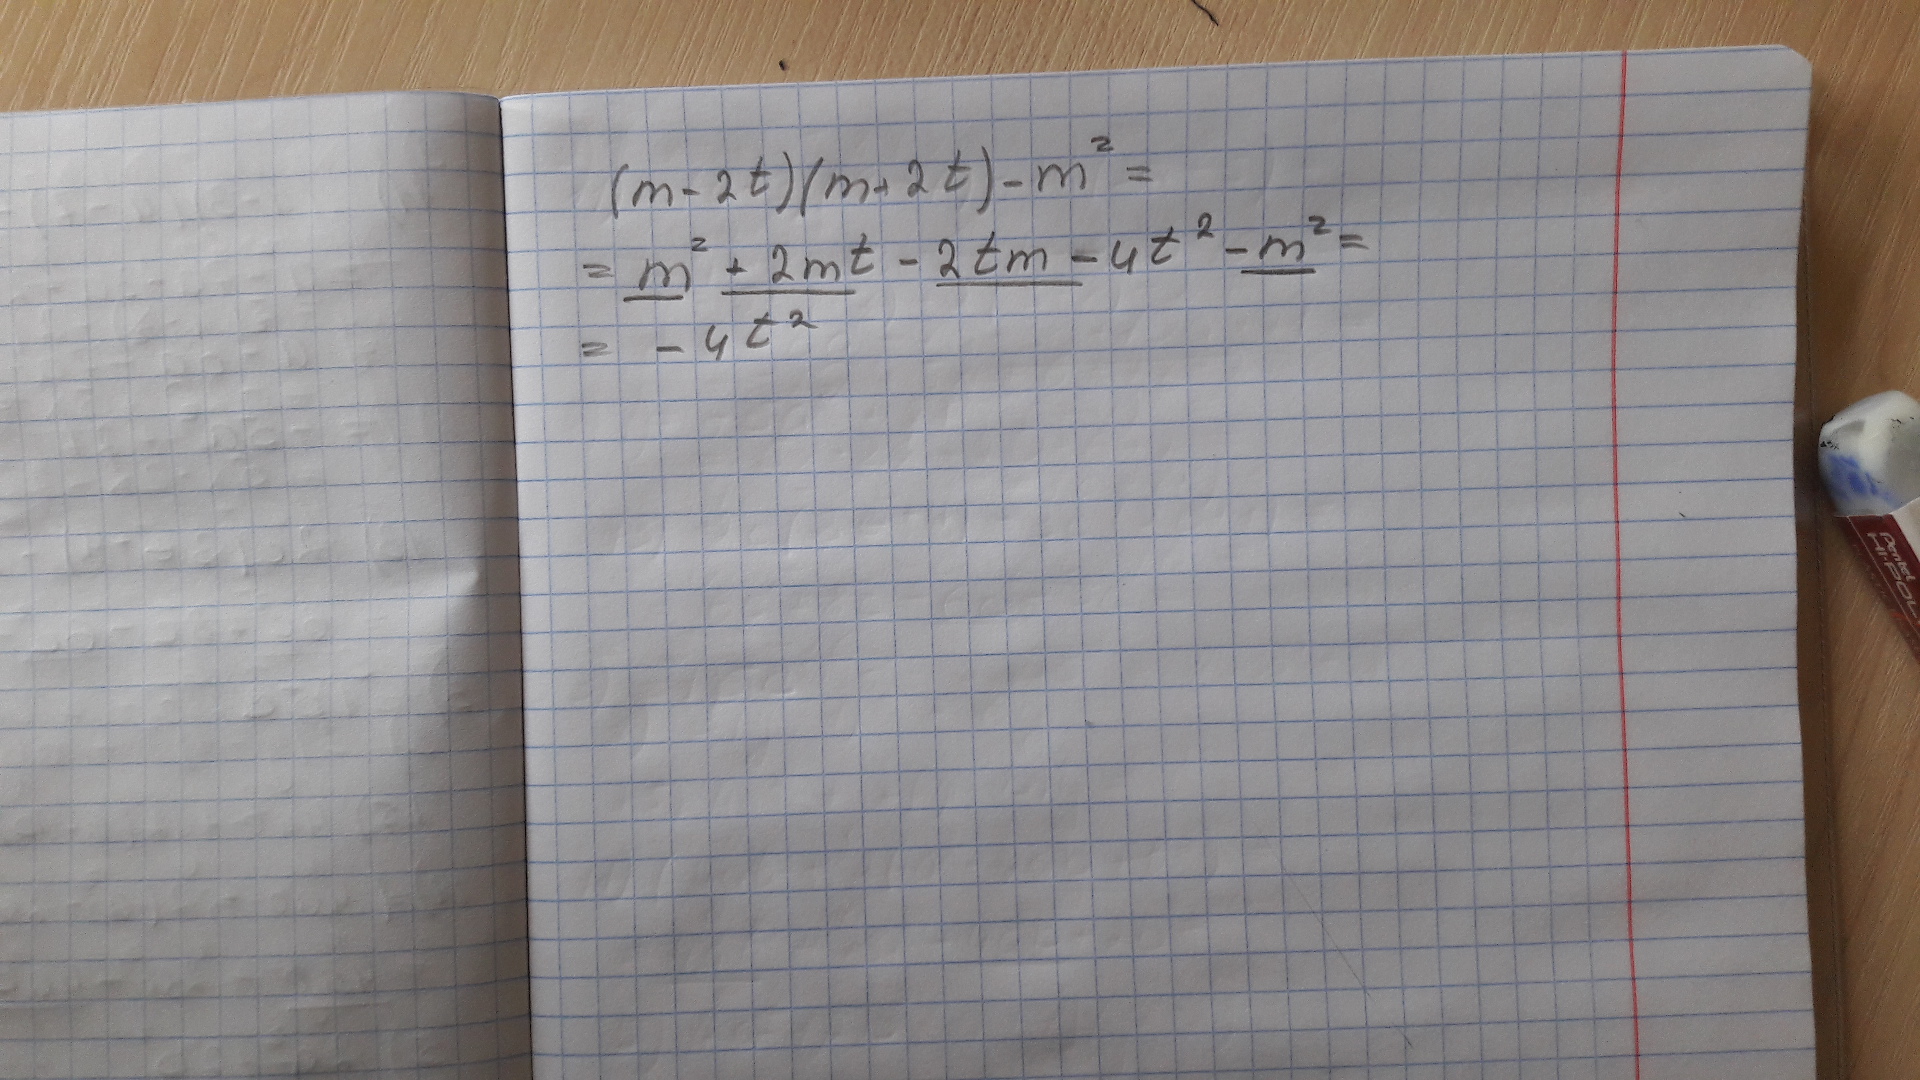 (m-2t)(m+2t)-m²=
= m² + 2mt - 2tm - 4t² - m² =
= - 4t²
Pentel
HI-POL